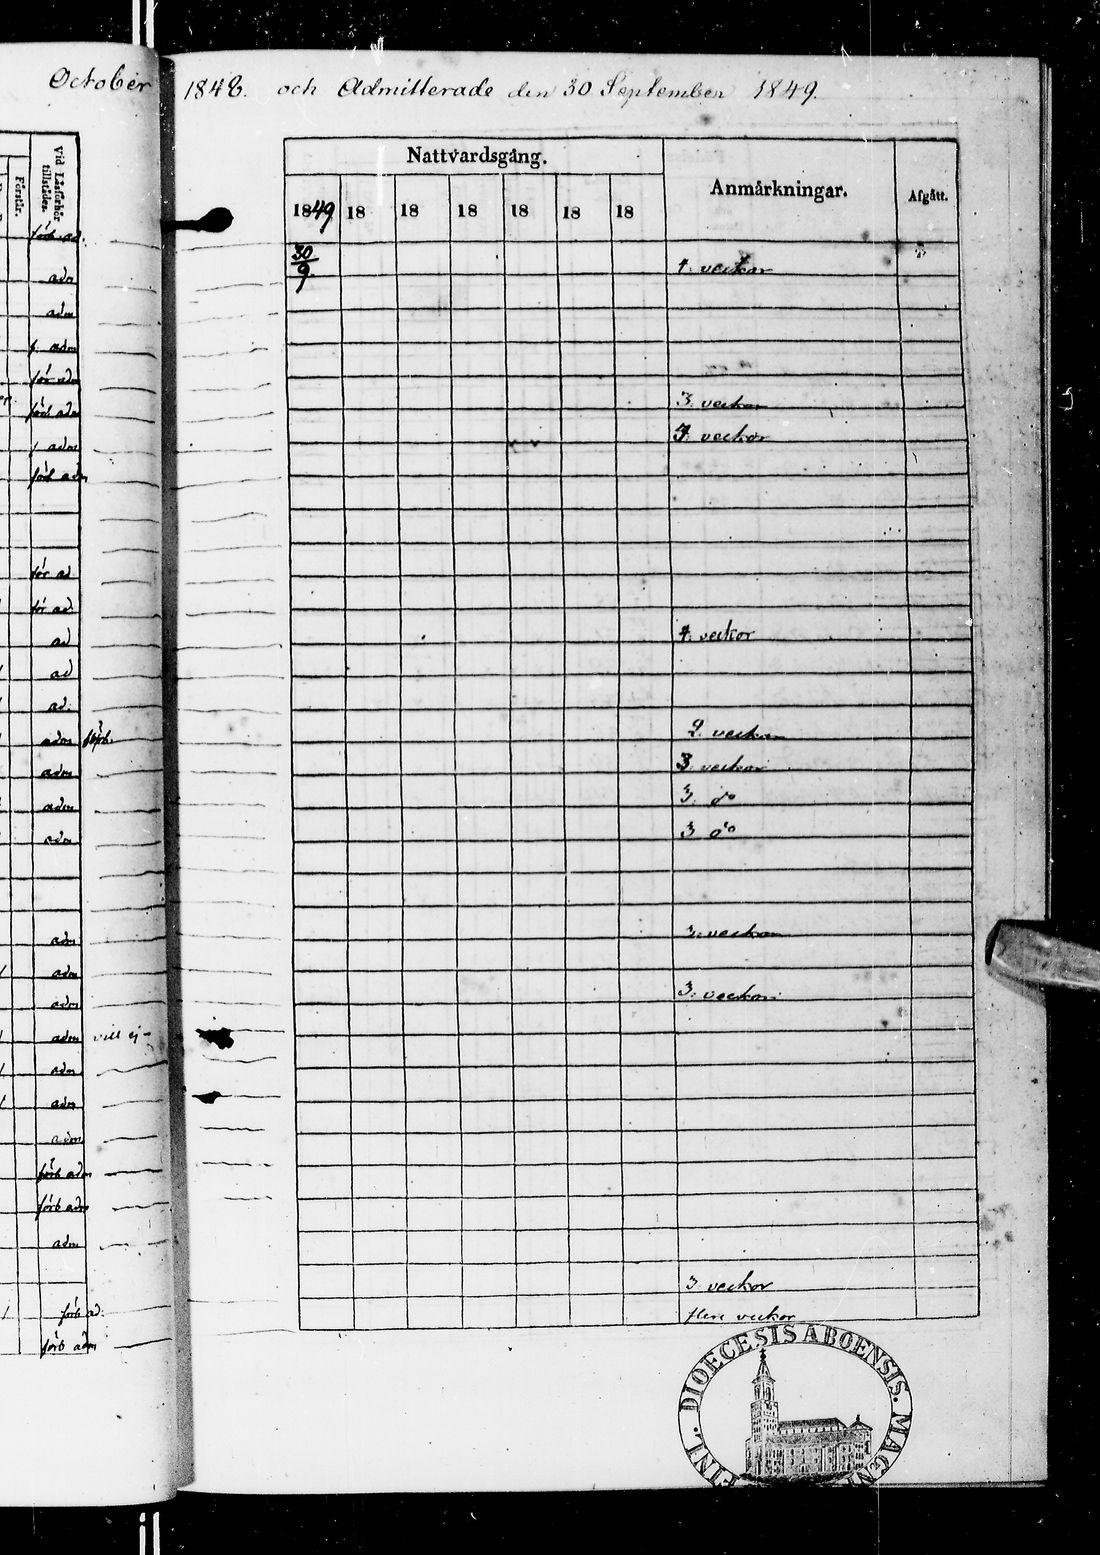 October 1848. och Admitterade den 30 September 1849.
Vid Läsförhör tillstädes.
Förstår.
Nattvardsgång.
Anmärkningar.
Afgått.
1849 18 18 18 18 18 18
30/9
förb ad.
adm 4. veckor
adm
f. adm
för adm
förb adm 3. veckor
f adm 7. veckor
förb adm
för ad
för ad.
ad 4. veckor
ad
ad.
adm 2. veckor
adm 3 veckor
adm 3. do
adm 3 do
adm 3. veckor
adm
adm 3. veckor
adm vill ej
adm
adm
adm
förb adm
förb adm
adm
3. veckor
förb ad. flere veckor
förb adm
FINL. DIOECESIS ABOENSIS. MAGNI